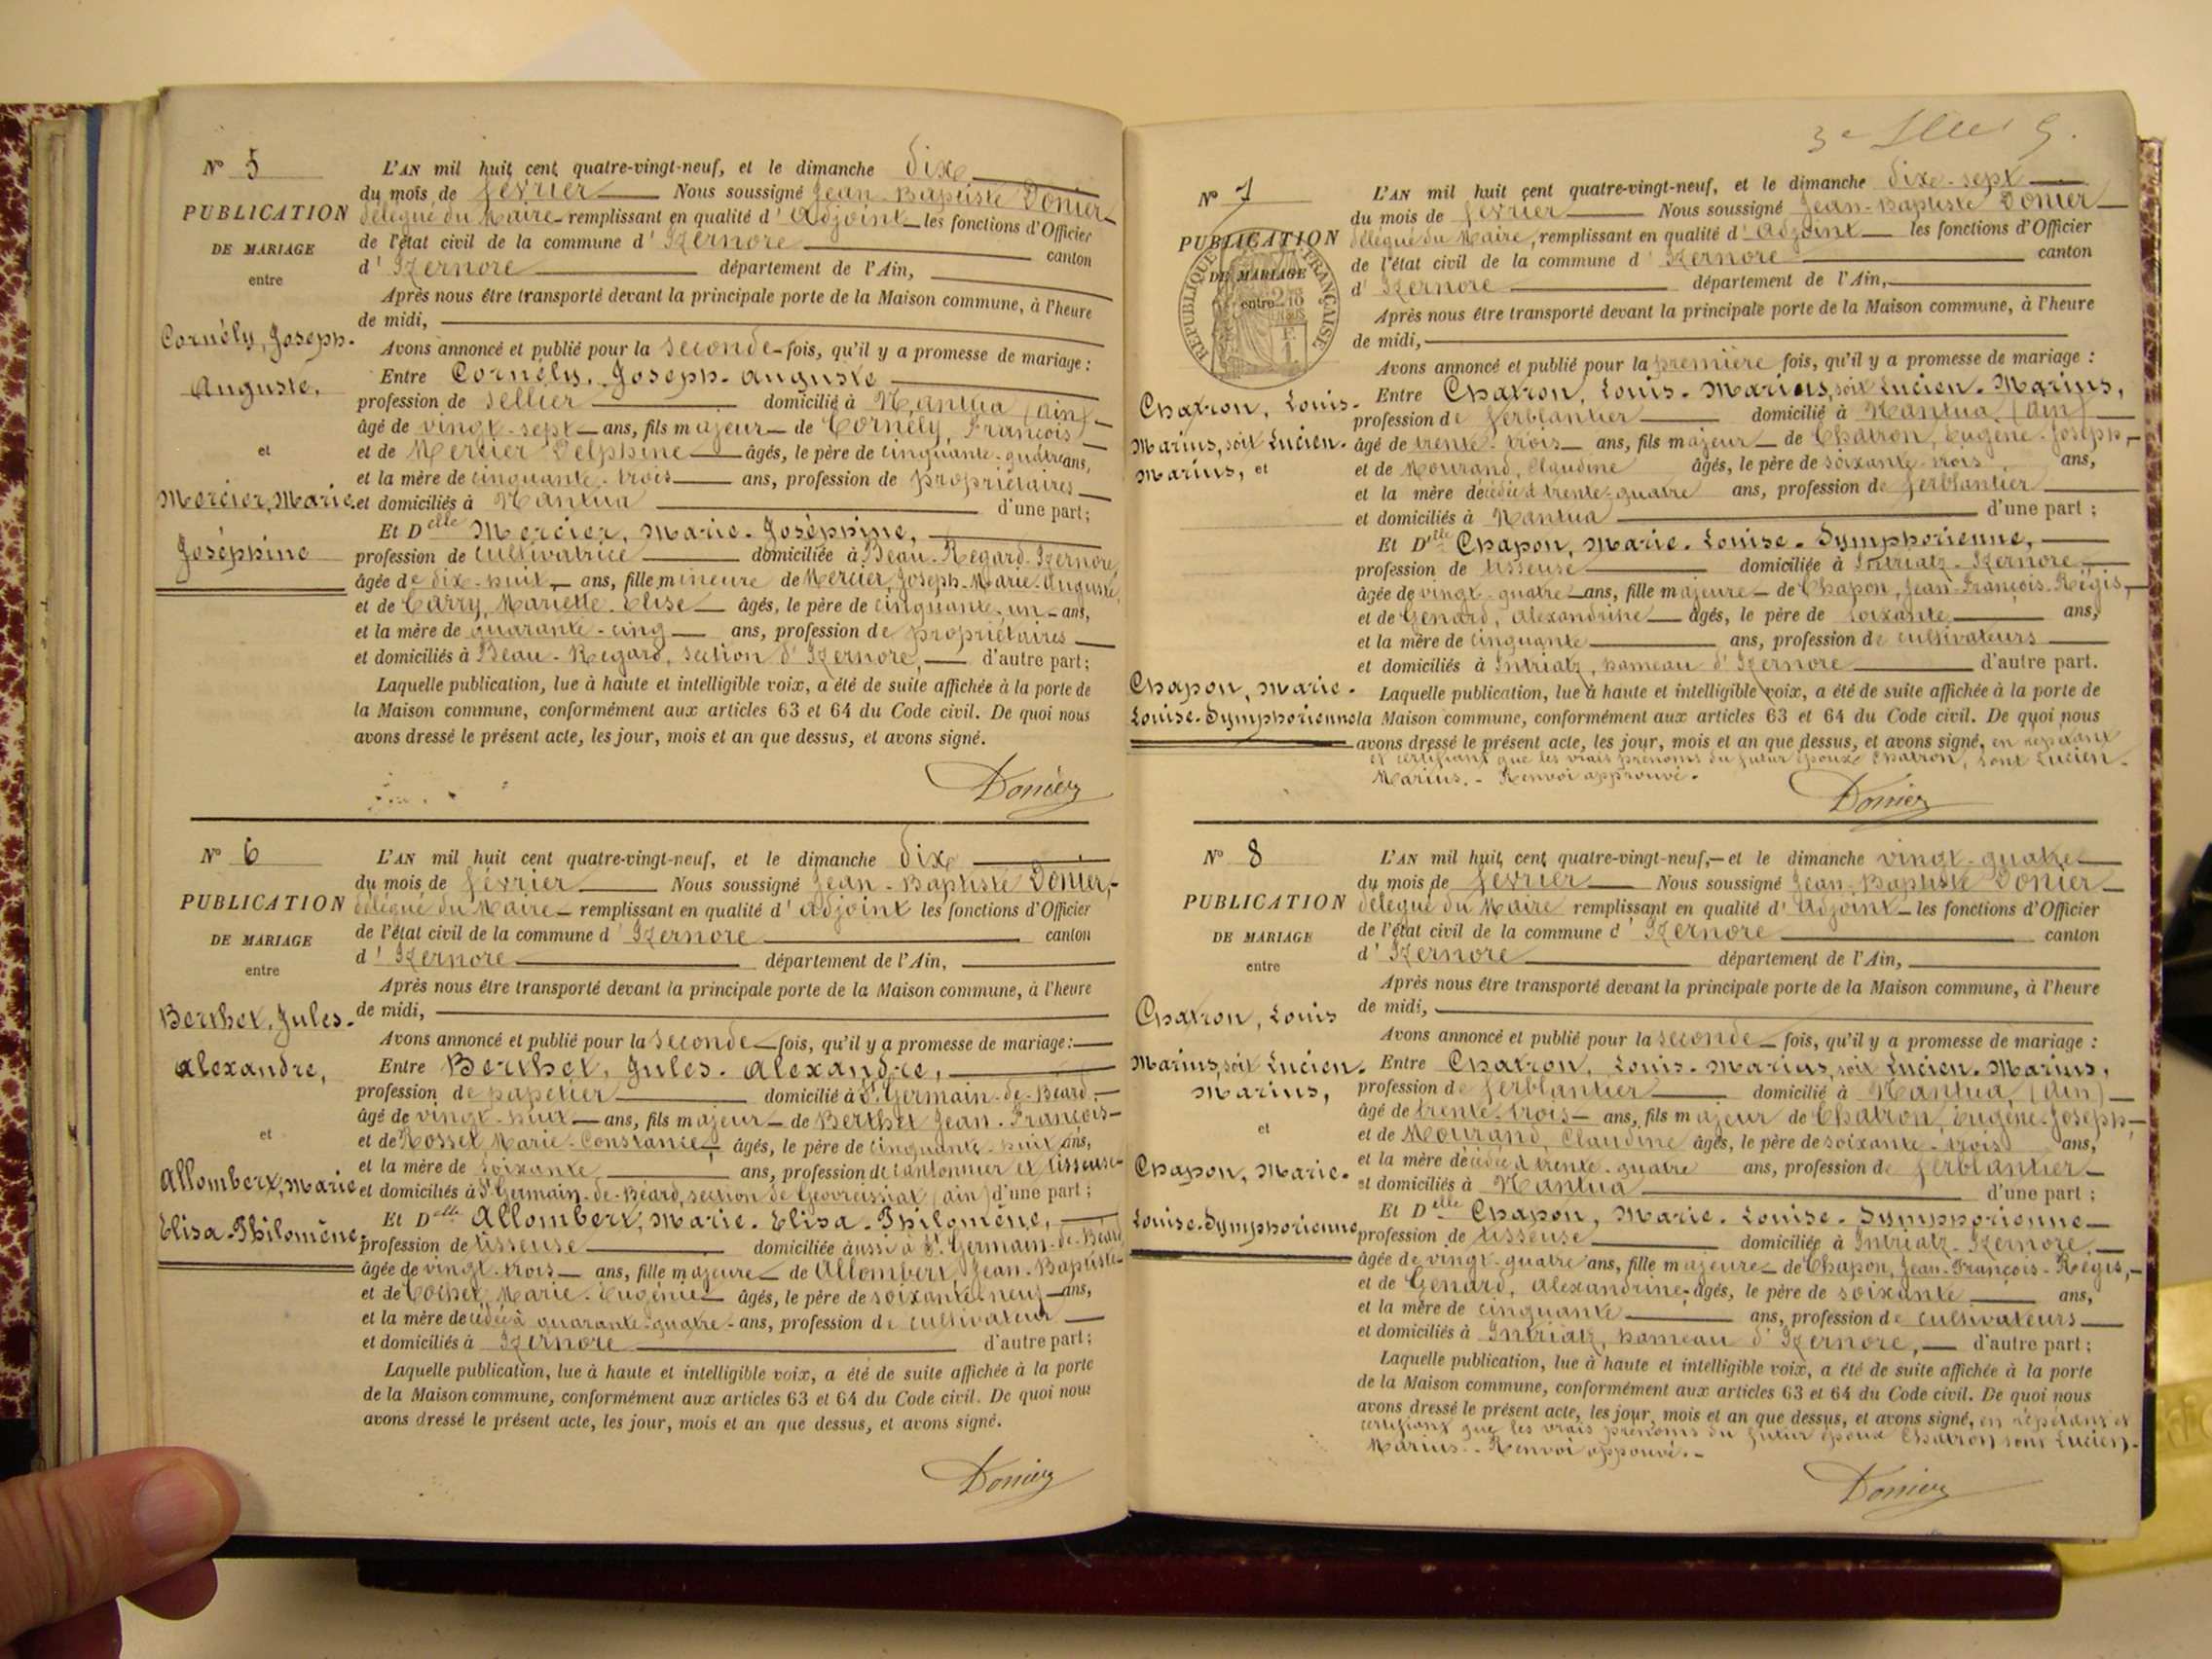 N° 5
PUBLICATION
DE MARIAGE
entre
Cornély, Joseph-
Auguste,
et
Mercier, Marie
Joséphine
L'AN mil huit cent quatre-vingt-neuf, et le dimanche dix
du mois de février Nous soussigné Jean-Baptiste Donier
délégué du Maire remplissant en qualité d'adjoint les fonctions d'Officier
de l'état civil de la commune d'Izernore canton
d'Izernore département de l'Ain,
Après nous être transporté devant la principale porte de la Maison commune, à l'heure
de midi,
Avons annoncé et publié pour la seconde fois, qu'il y a promesse de mariage :
Entre Cornély, Joseph-Auguste
profession de sellier domicilié à Nantua (ain)
âgé de vingt-sept ans, fils majeur de Cornély, François
et de Mercier Delphine âgés, le père de cinquante-quatre ans,
et la mère de cinquante-trois ans, profession de propriétaires
et domiciliés à Nantua d'une part ;
Et Delle Mercier, Marie-Joséphine,
profession de cultivatrice domiciliée à Beau-Regard-Izernore
âgée de dix-huit ans, fille mineure de Mercier, Joseph-Marie-Auguste
et de Carry, Mariette-Elise âgés, le père de cinquante-un ans,
et la mère de quarante-cinq ans, profession de propriétaires
et domiciliés à Beau-Regard, section d'Izernore, d'autre part ;
Laquelle publication, lue à haute et intelligible voix, a été de suite affichée à la porte de
la Maison commune, conformément aux articles 63 et 64 du Code civil. De quoi nous
avons dressé le présent acte, les jour, mois et an que dessus, et avons signé.
Donier
N° 6
PUBLICATION
DE MARIAGE
entre
Berthet, Jules-
Alexandre,
et
Allombert, Marie
Elisa-Philomène.
L'AN mil huit cent quatre-vingt-neuf, et le dimanche dix
du mois de février Nous soussigné Jean-Baptiste Donier,
délégué du Maire remplissant en qualité d'adjoint les fonctions d'Officier
de l'état civil de la commune d'Izernore canton
d'Izernore département de l'Ain,
Après nous être transporté devant la principale porte de la Maison commune, à l'heure
de midi,
Avons annoncé et publié pour la seconde fois, qu'il y a promesse de mariage :
Entre Berthet, Jules-Alexandre,
profession de papetier domicilié à St Germain-de-Béard,
âgé de vingt-huit ans, fils majeur de Berthet Jean-François
et de Rosset, Marie-Constance âgés, le père de cinquante-huit ans,
et la mère de soixante ans, profession de cantonnier et tisseuse
et domiciliés à St Germain-de-Béard, section de Géovreissiat (ain) d'une part ;
Et Delle Allombert, Marie-Elisa-Philomène,
profession de tisseuse domiciliée aussi à St Germain-de-Béard
âgée de vingt-trois ans, fille majeure de Allombert, Jean-Baptiste
et de Cochet, Marie-Eugénie âgés, le père de soixante-neuf ans,
et la mère décédée à quarante-quatre ans, profession de cultivateur
et domiciliés à Izernore d'autre part ;
Laquelle publication, lue à haute et intelligible voix, a été de suite affichée à la porte
de la Maison commune, conformément aux articles 63 et 64 du Code civil. De quoi nous
avons dressé le présent acte, les jour, mois et an que dessus, et avons signé.
Donier
3e
N° 7
PUBLICATION
DE MARIAGE
entre
RÉPUBLIQUE FRANÇAISE
Chatron, Louis-
Marius, soit Lucien-
Marius, et
Chapon, Marie-
Louise-Symphorienne
L'AN mil huit cent quatre-vingt-neuf, et le dimanche dix-sept
du mois de février Nous soussigné Jean-Baptiste Donier
délégué du Maire, remplissant en qualité d'adjoint les fonctions d'Officier
de l'état civil de la commune d'Izernore canton
d'Izernore département de l'Ain,
Après nous être transporté devant la principale porte de la Maison commune, à l'heure
de midi,
Avons annoncé et publié pour la première fois, qu'il y a promesse de mariage :
Entre Chatron, Louis-Marius, soit Lucien-Marius,
profession de ferblantier domicilié à Nantua (ain)
âgé de trente-trois ans, fils majeur de Chatron, Eugène-Joseph,
et de Mourand, Claudine âgés, le père de soixante-trois ans,
et la mère décédée à trente-quatre ans, profession de ferblantier
et domiciliés à Nantua d'une part ;
Et Delle Chapon, Marie-Louise-Symphorienne,
profession de tisseuse domiciliée à Intriatz-Izernore
âgée de vingt-quatre ans, fille majeure de Chapon, Jean-François-Régis,
et de Genard, Alexandrine âgés, le père de soixante ans,
et la mère de cinquante ans, profession de cultivateurs
et domiciliés à Intriatz, hameau d'Izernore d'autre part.
Laquelle publication, lue à haute et intelligible voix, a été de suite affichée à la porte de
la Maison commune, conformément aux articles 63 et 64 du Code civil. De quoi nous
avons dressé le présent acte, les jour, mois et an que dessus, et avons signé, en répétant
et certifiant que les vrais prénoms du futur époux Chatron, sont Lucien-
Marius. - Renvoi approuvé.
Donier
N° 8
PUBLICATION
DE MARIAGE
entre
Chatron, Louis
Marius, soit Lucien-
Marius,
et
Chapon, Marie-
Louise-Symphorienne
L'AN mil huit cent quatre-vingt-neuf, et le dimanche vingt-quatre
du mois de février Nous soussigné Jean-Baptiste Donier
délégué du Maire remplissant en qualité d'adjoint les fonctions d'Officier
de l'état civil de la commune d'Izernore canton
d'Izernore département de l'Ain,
Après nous être transporté devant la principale porte de la Maison commune, à l'heure
de midi,
Avons annoncé et publié pour la seconde fois, qu'il y a promesse de mariage :
Entre Chatron, Louis-Marius, soit Lucien-Marius,
profession de ferblantier domicilié à Nantua, (ain)
âgé de trente-trois ans, fils majeur de Chatron, Eugène-Joseph
et de Mourand, Claudine âgés, le père de soixante-trois ans,
et la mère décédée à trente-quatre ans, profession de ferblantier
et domiciliés à Nantua d'une part ;
Et Delle Chapon, Marie-Louise-Symphorienne
profession de tisseuse domiciliée à Intriatz-Izernore,
âgée de vingt-quatre ans, fille majeure de Chapon, Jean-François-Régis,
et de Genard, Alexandrine âgés, le père de soixante ans,
et la mère de cinquante ans, profession de cultivateurs
et domiciliés à Intriatz, hameau d'Izernore, d'autre part ;
Laquelle publication, lue à haute et intelligible voix, a été de suite affichée à la porte
de la Maison commune, conformément aux articles 63 et 64 du Code civil. De quoi nous
avons dressé le présent acte, les jour, mois et an que dessus, et avons signé, en répétant et
certifiant que les vrais prénoms du futur époux Chatron sont Lucien-
Marius. - Renvoi approuvé. -
Donier